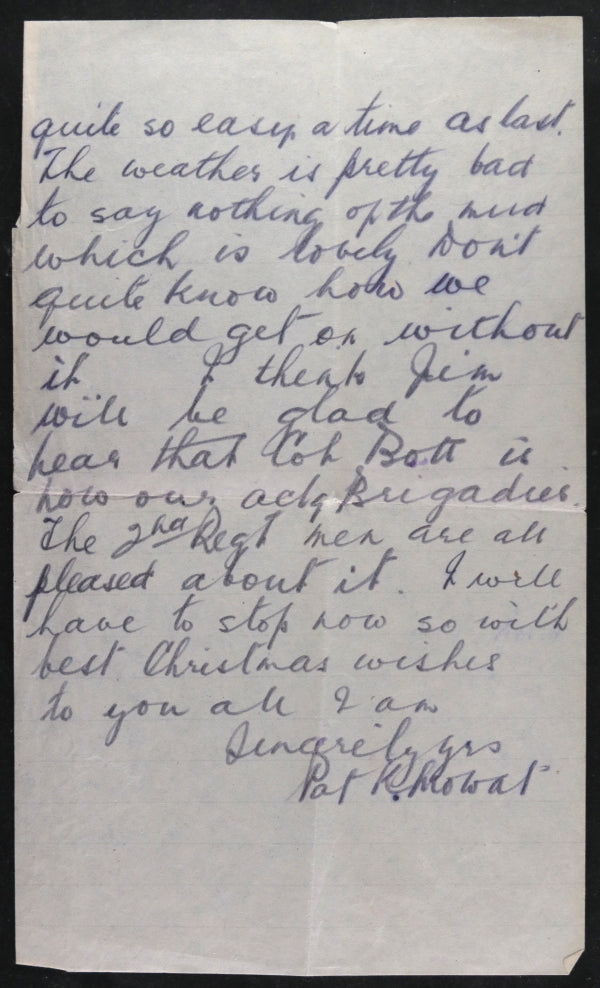 quite so easy a time as last.
The weather is pretty bad
to say nothing of the mud
which is lovely Don't
quite know how we
would get on without
it I think Jim
will be glad to
hear that Col Bott is
now our actg Brigadier.
The 2nd Regt men are all
pleased about it. I will
have to stop now so with
best Christmas wishes
to you all I am
Sincerely yrs
Pat K. Mowat